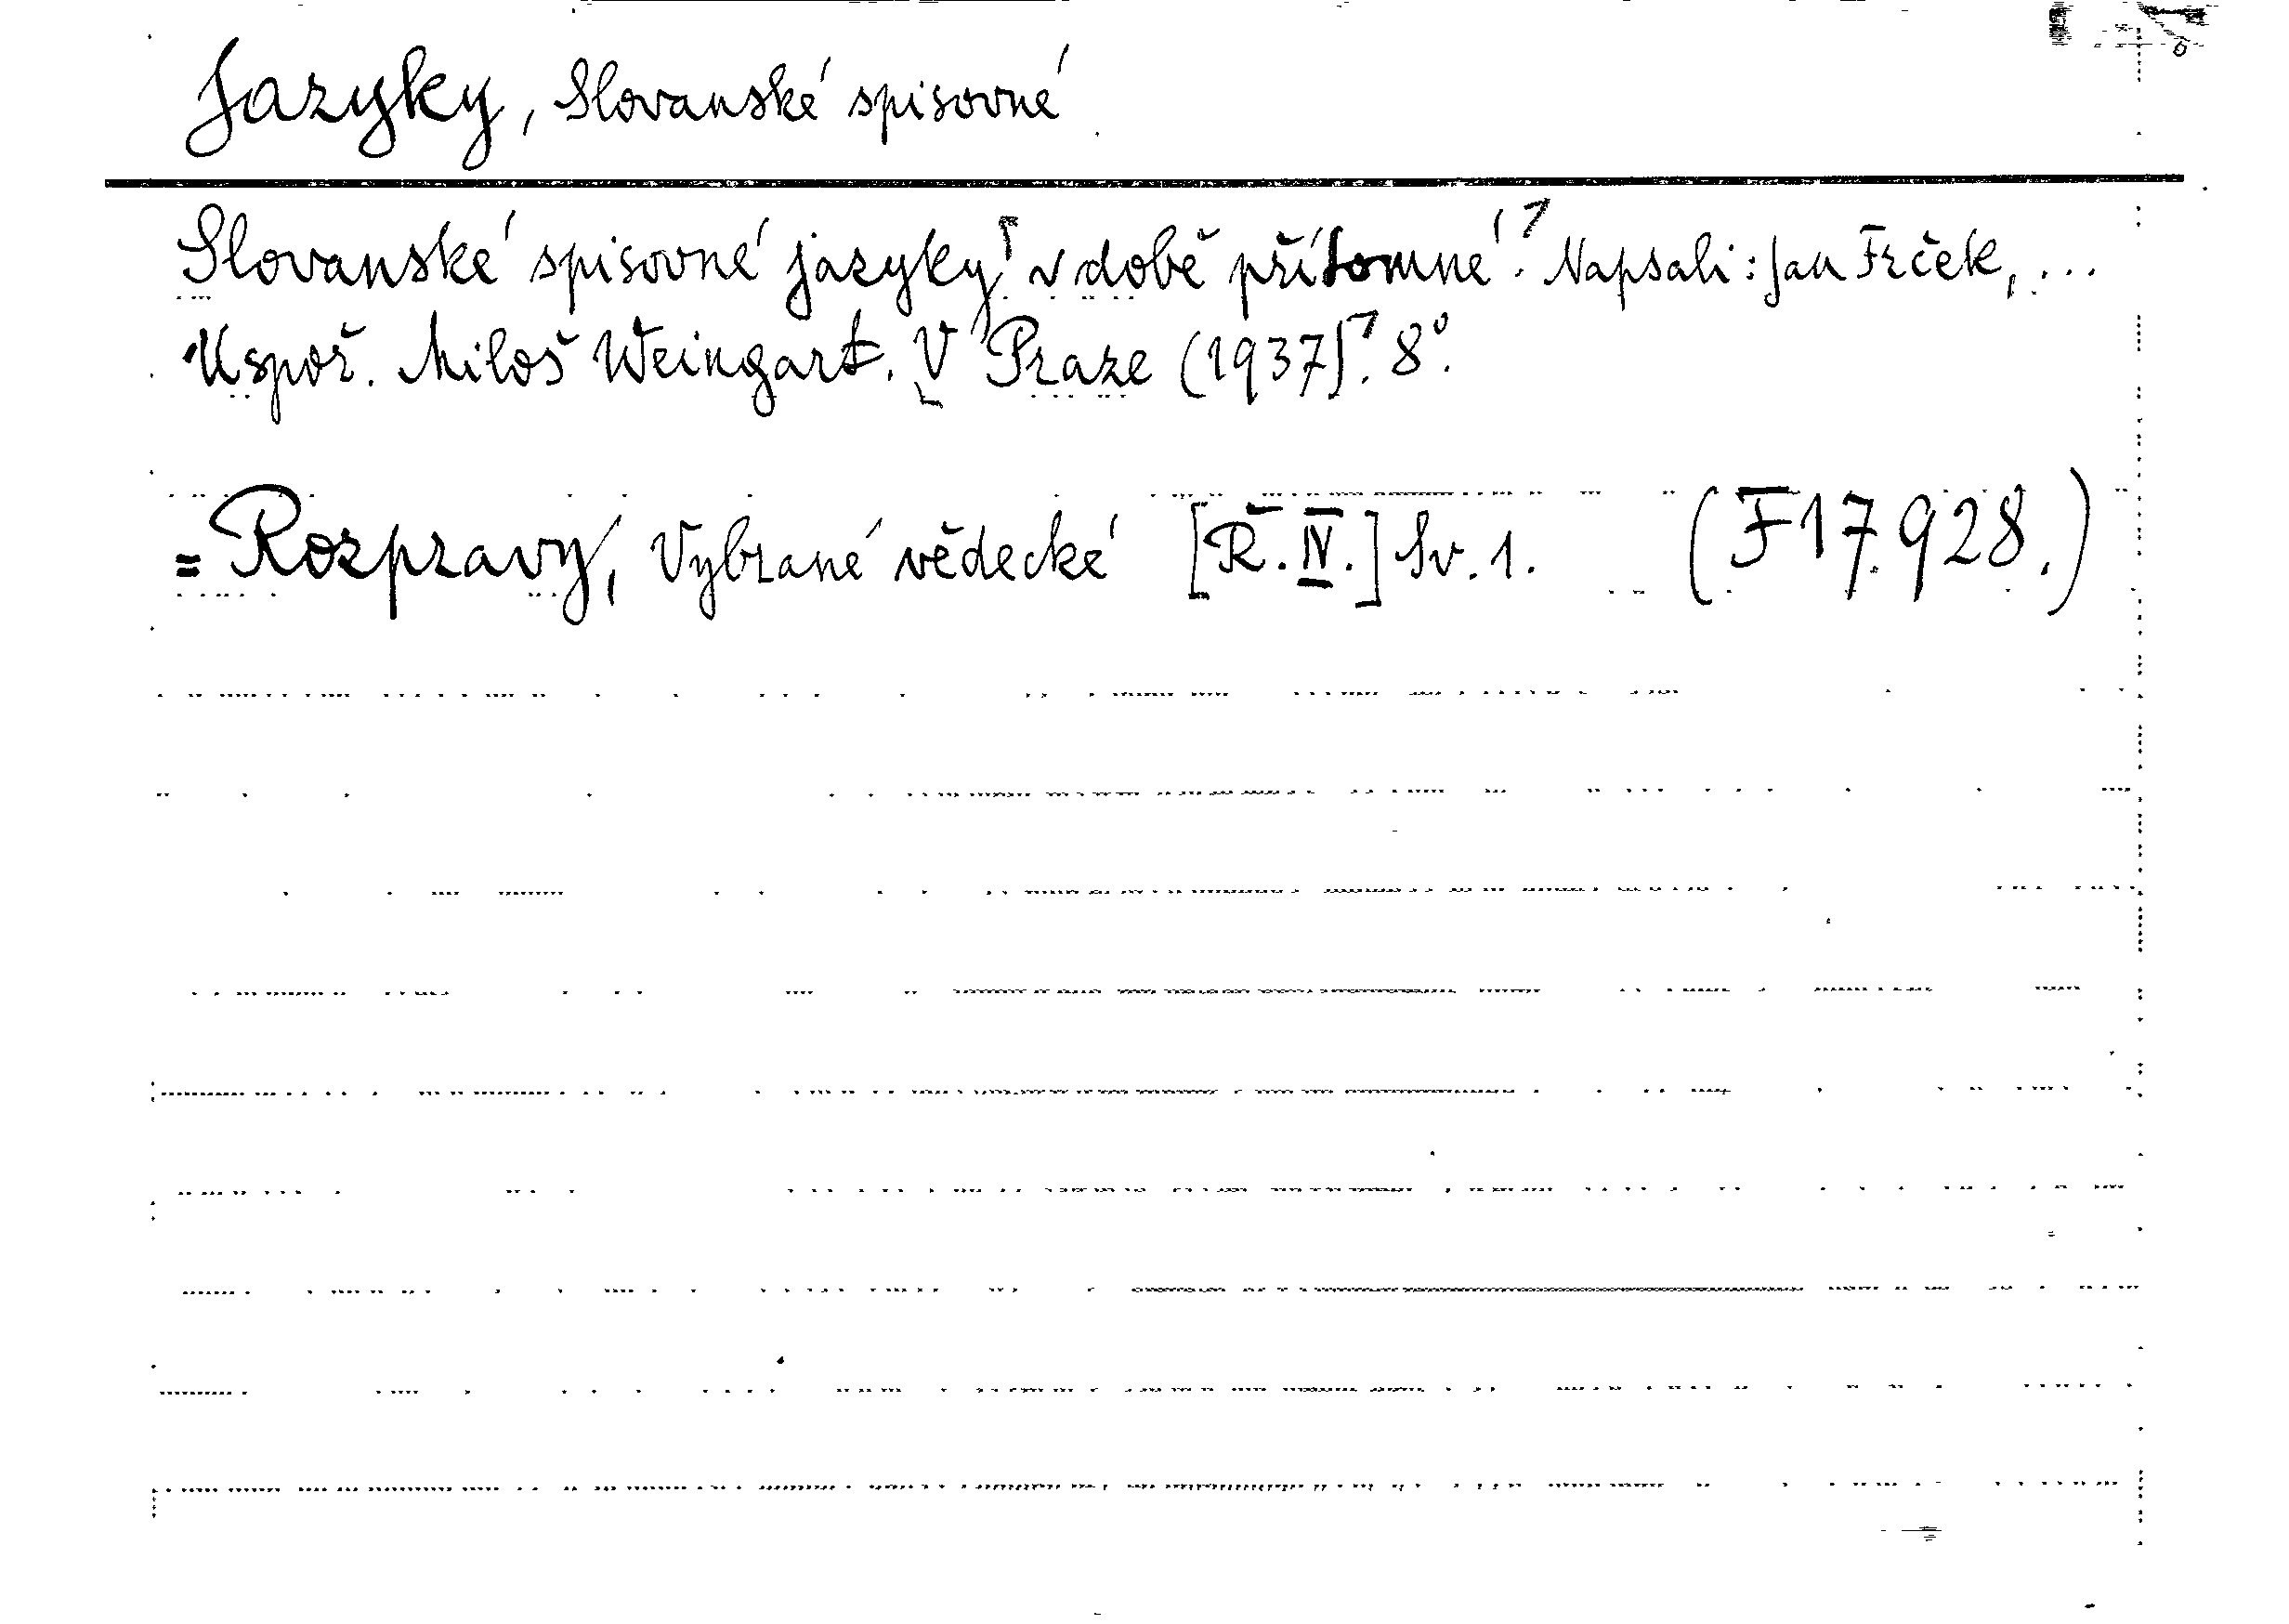 Jazyky, Slovanské spisovné
Slovanské spisovné jazyky v době přítomné. Napsali: Jan Frček, ...
Uspoř. Miloš Weingart. V Praze (1937). 8°.
= Rozpravy, Vybrané vědecké [Ř. IV.] Sv. 1. (F 17.928.)